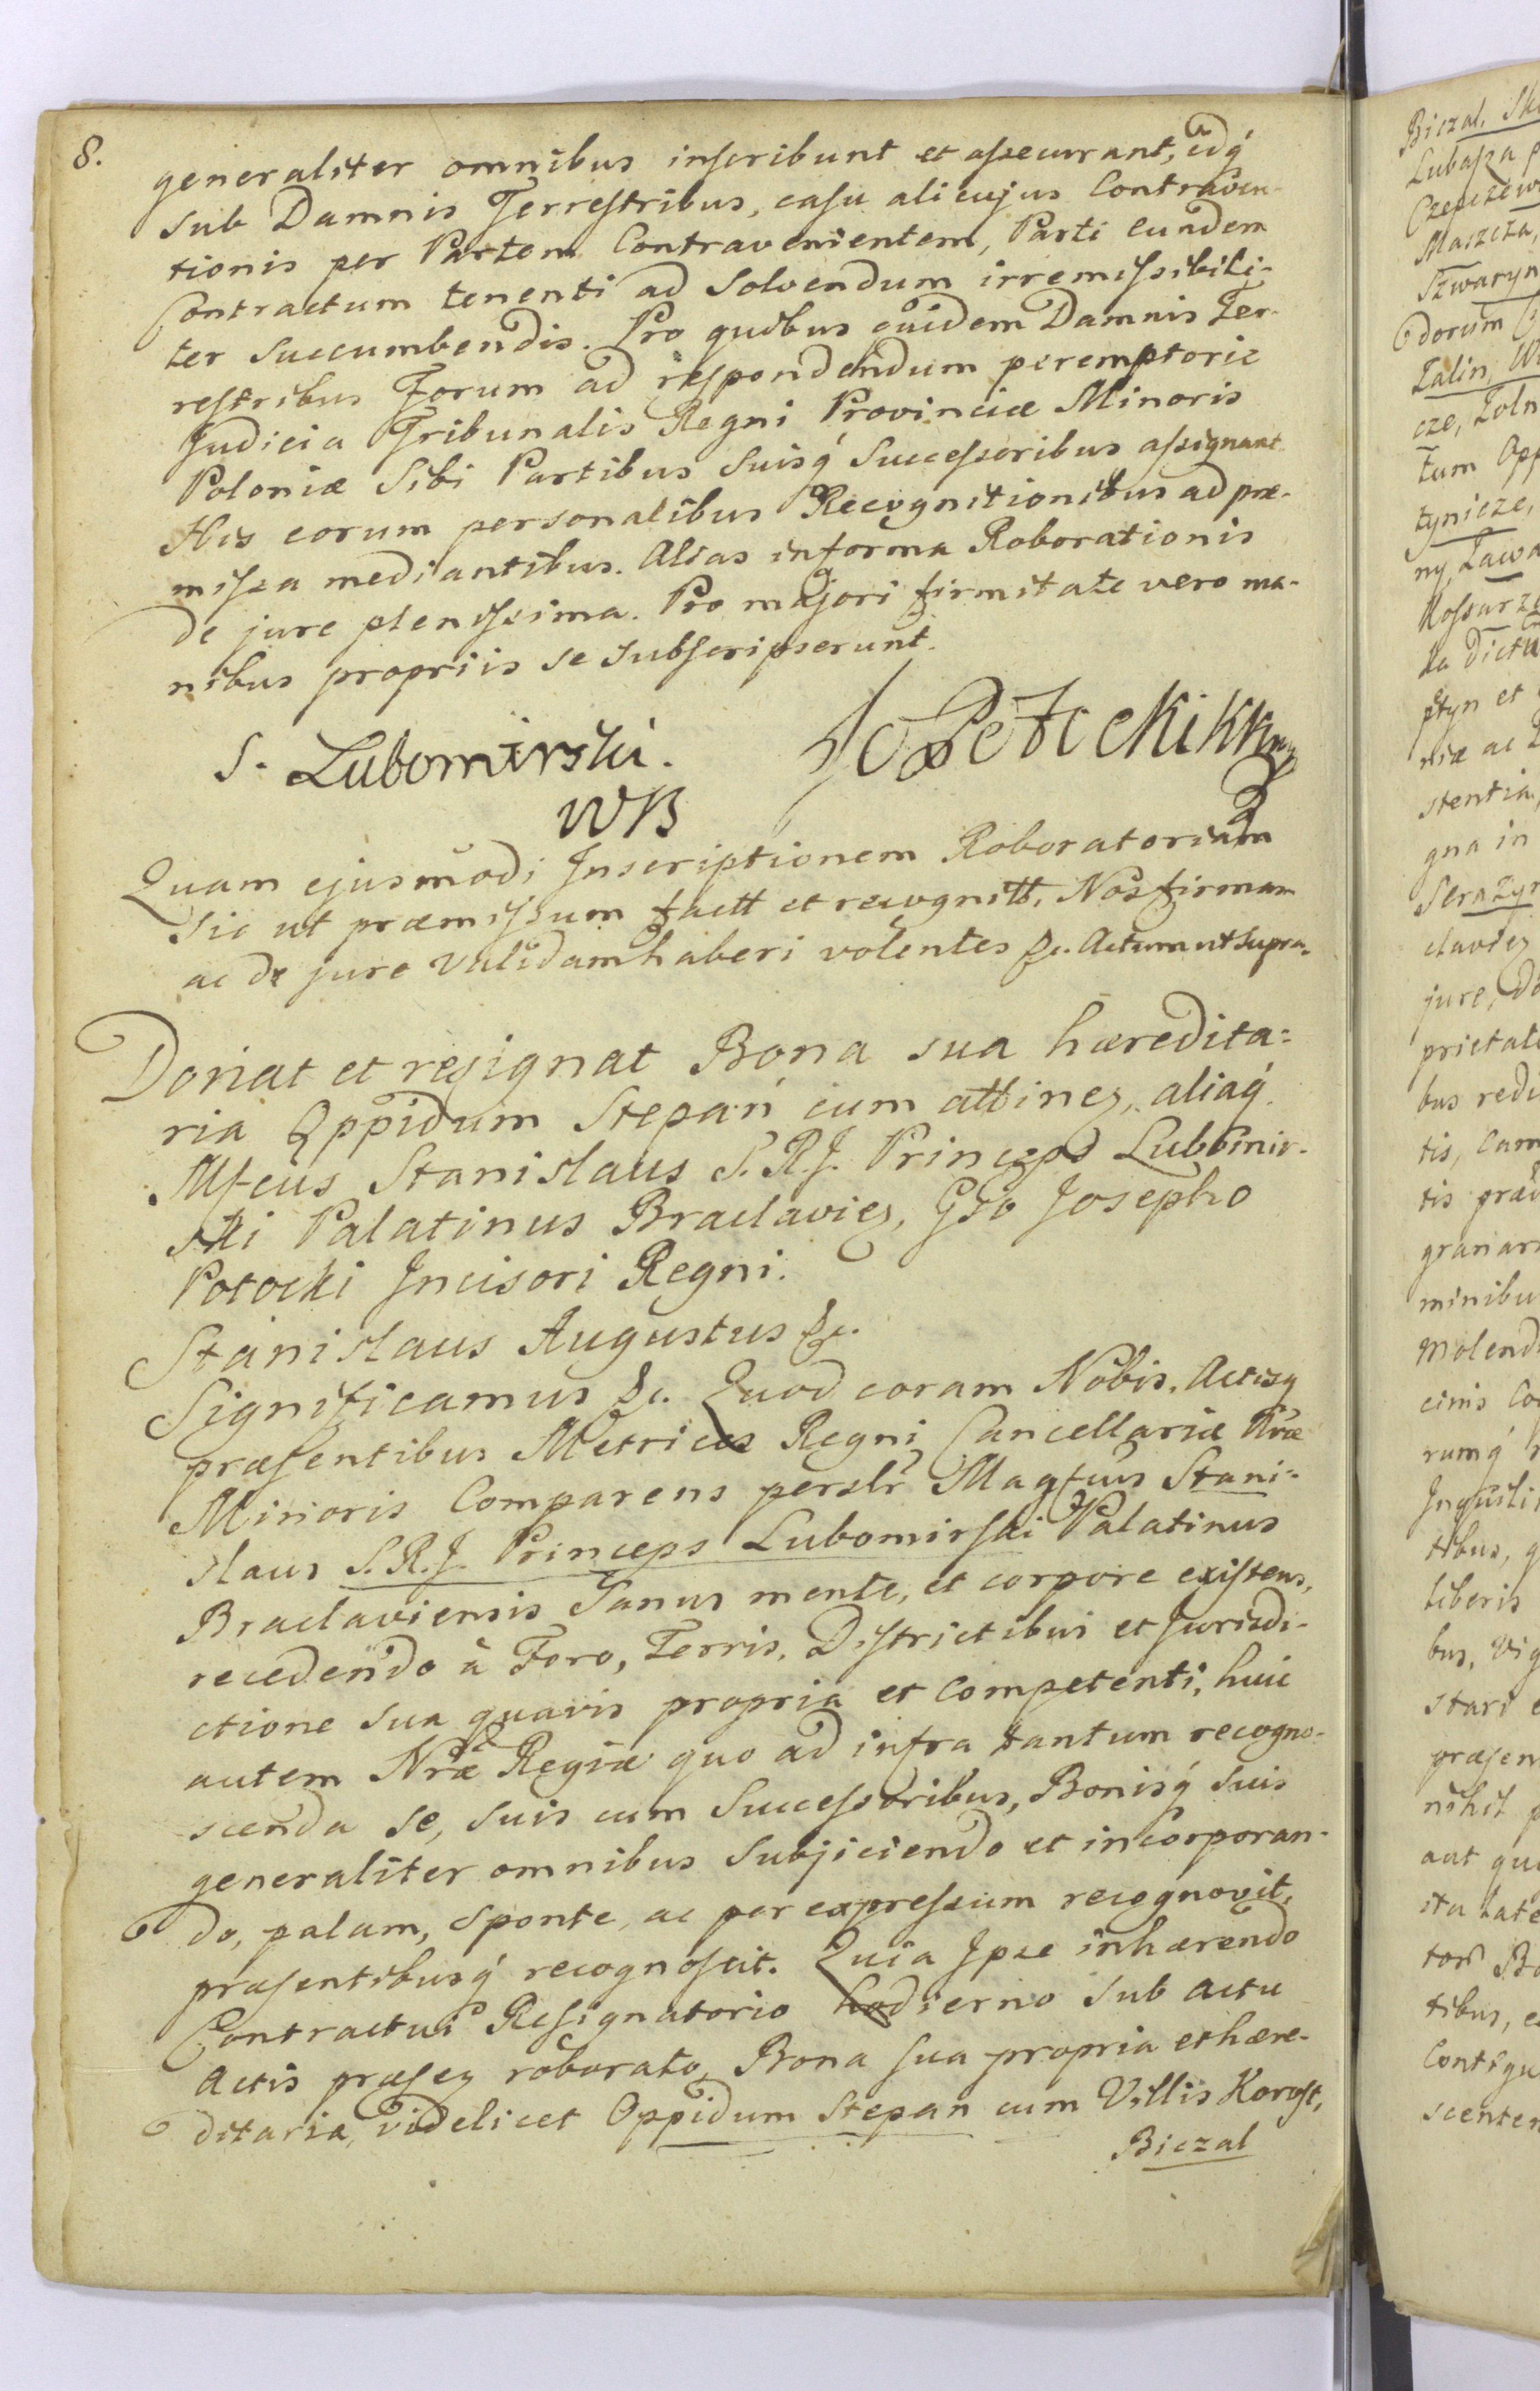 8.
generaliter omnibus inscribunt et assecurant, idq́
sub Damnis Terrestribus, casu alicujus Contraven-
tionis per Partem Contravenientem, Parti eundem
Contractum tenenti ad solvendum irremissibili-
ter succumbendis. Pro quibus eisdem Damnis Ter-
restribus Forum ad respondendum peremptorie
Judicia Tribunalis Regni Provinciæ Minoris
Poloniæ Sibi Partibus Suisq́ Successoribus assignant.
His eorum personalibus Recognitionibus ad præ-
missa mediantibus. Alias in forma Roborationis
de jure plenissima. Pro majori firmitate vero ma-
nibus propriis se subscripserunt.
S. Lubomirski.
WB
Jo Potocki KK
Quam ejusmodi Inscriptionem Roboratoriam
sic ut præmissum factt et recognitt, Nos firmam
ac de jure validam haberi volentes &c. Actum ut supra.
Donat et resignat Bona sua hæredita=
ria Oppidum Stepań cum attinez, aliaq́
Mfcus Stanislaus S.R.J. Princeps Lubomir-
ski Palatinus Braclaviez, Gso Josepho
Potocki Incisori Regni.
Stanislaus Augustus &c.
Significamus &c. Quod coram Nobis, Actisq
præsentibus Metrices Regni Cancellariæ Nræ
Minoris Comparens perslr Magfcus Stani-
slaus S.R.J. Princeps Lubomirski Palatinus
Braclaviensis Sanus mente, et corpore existens,
recedendo à Foro, Terris, Districtibus et Jurisdi-
ctione sua quavis propria et competenti, huic
autem Nræ Regiæ quo ad infra tantum recogno-
scenda se, suis cum Successoribus, Bonisq́ suis
generaliter omnibus Subjiciendo et incorporan-
do, palam, sponte, ac per expressum recognovit,
præsentibusq́ recognoscit. Quia Ipse inhærendo
Contractui Resignatorio hodierno sub actu
Actis præsez roborato, Bona sua propria et hære-
ditaria, videlicet Oppidum Stepan cum Villis Korost,
Biczal
Biczal,
Lubasza
Maszcza,
Szwaryn
dorum
Zalin,
cze,
tum Opp
tynicze,
ny,
ptyn et
niæ ac
stentia,
gna in
jure,
prietat
bus redi
tis,
granar
minibu
Molend
cinis
rumq́
Inquili
tibus,
liberis
bus,
stari
præsen
nihil
aut
ita late
tibus,
Contigu
scenten